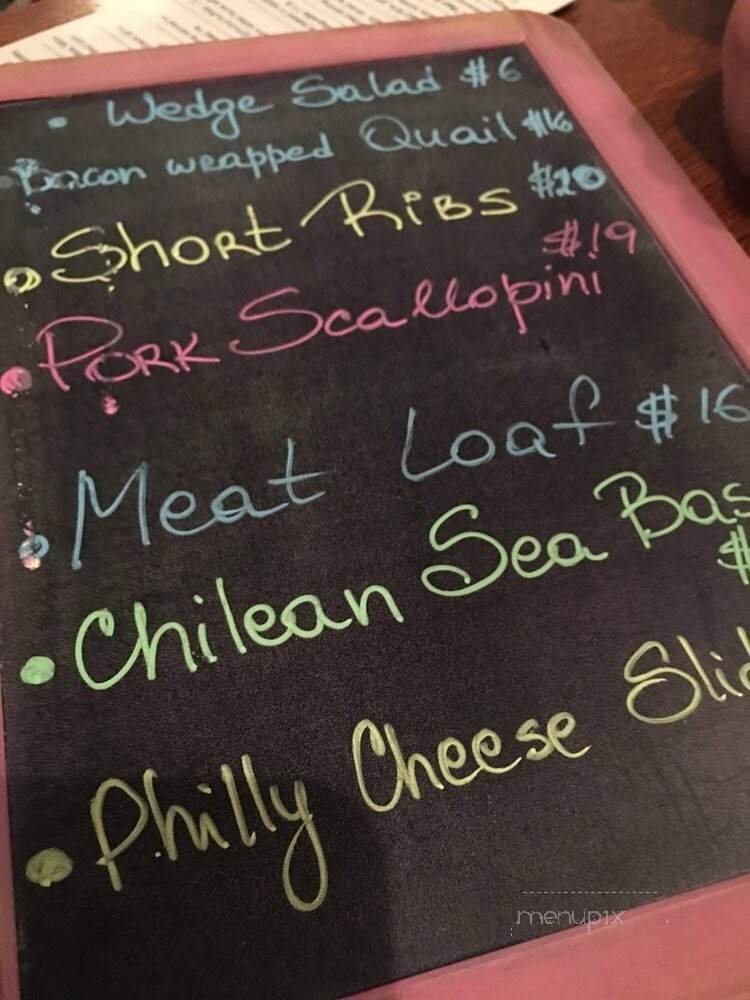 • Wedge Salad $6
Bacon wrapped Quail $16
$20
• Short Ribs
$19
• Pork Scallopini
• Meat Loaf $16
• Chilean Sea Bas
$
• Philly Cheese Slid
menupix